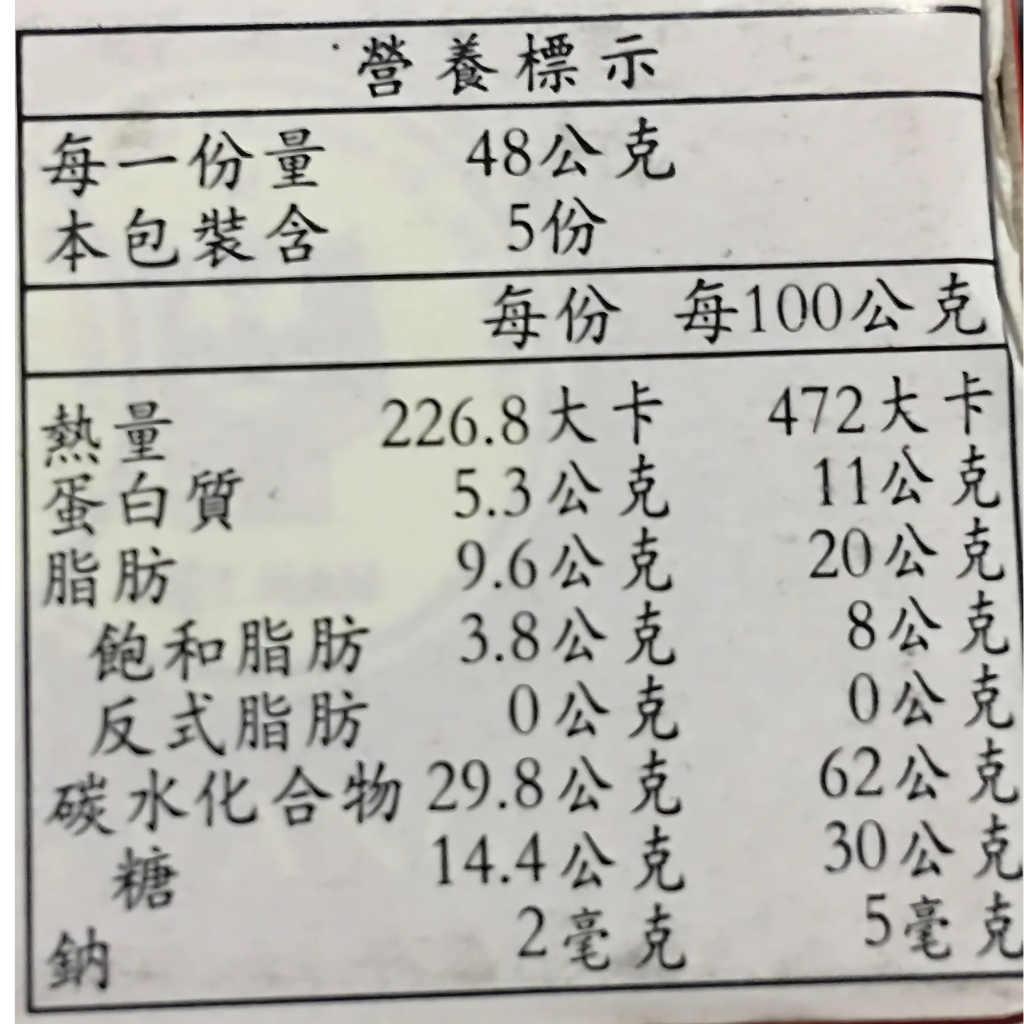 營養標示
每一份量 48公克
本包裝含 5份
每份 每100公克
熱量 226.8大卡 472大卡
蛋白質 5.3公克 11公克
脂肪 9.6公克 20公克
飽和脂肪 3.8公克 8公克
反式脂肪 0公克 0公克
碳水化合物 29.8公克 62公克
糖 14.4公克 30公克
鈉 2毫克 5毫克